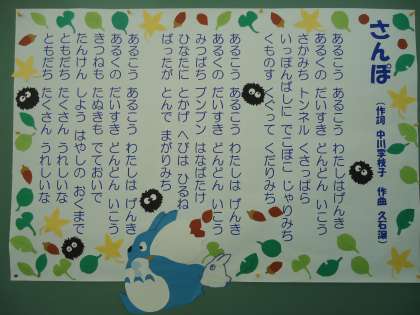 さんぽ
(作詞 中川李枝子 作曲 久石譲)
あるこう あるこう わたしはげんき
あるくの だいすき どんどん いこう
さかみち トンネル くさっぱら
いっぽんばしに でこぼこ じゃりみち
くものす くぐって くだりみち
あるこう あるこう わたしは げんき
あるくの だいすき どんどん いこう
みつばち ブンブン はなばたけ
ひなたに とかげ へびは ひるね
ばったが とんで まがりみち
あるこう あるこう わたしは げんき
あるくの だいすき どんどん いこう
きつねも たぬきも でておいで
たんけん しよう はやしの おくまで
ともだち たくさん うれしいな
ともだち たくさん うれしいな